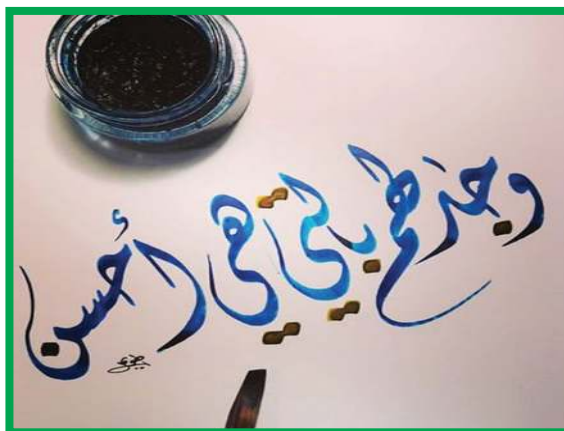 وجدلهم بالتي هي أحسن